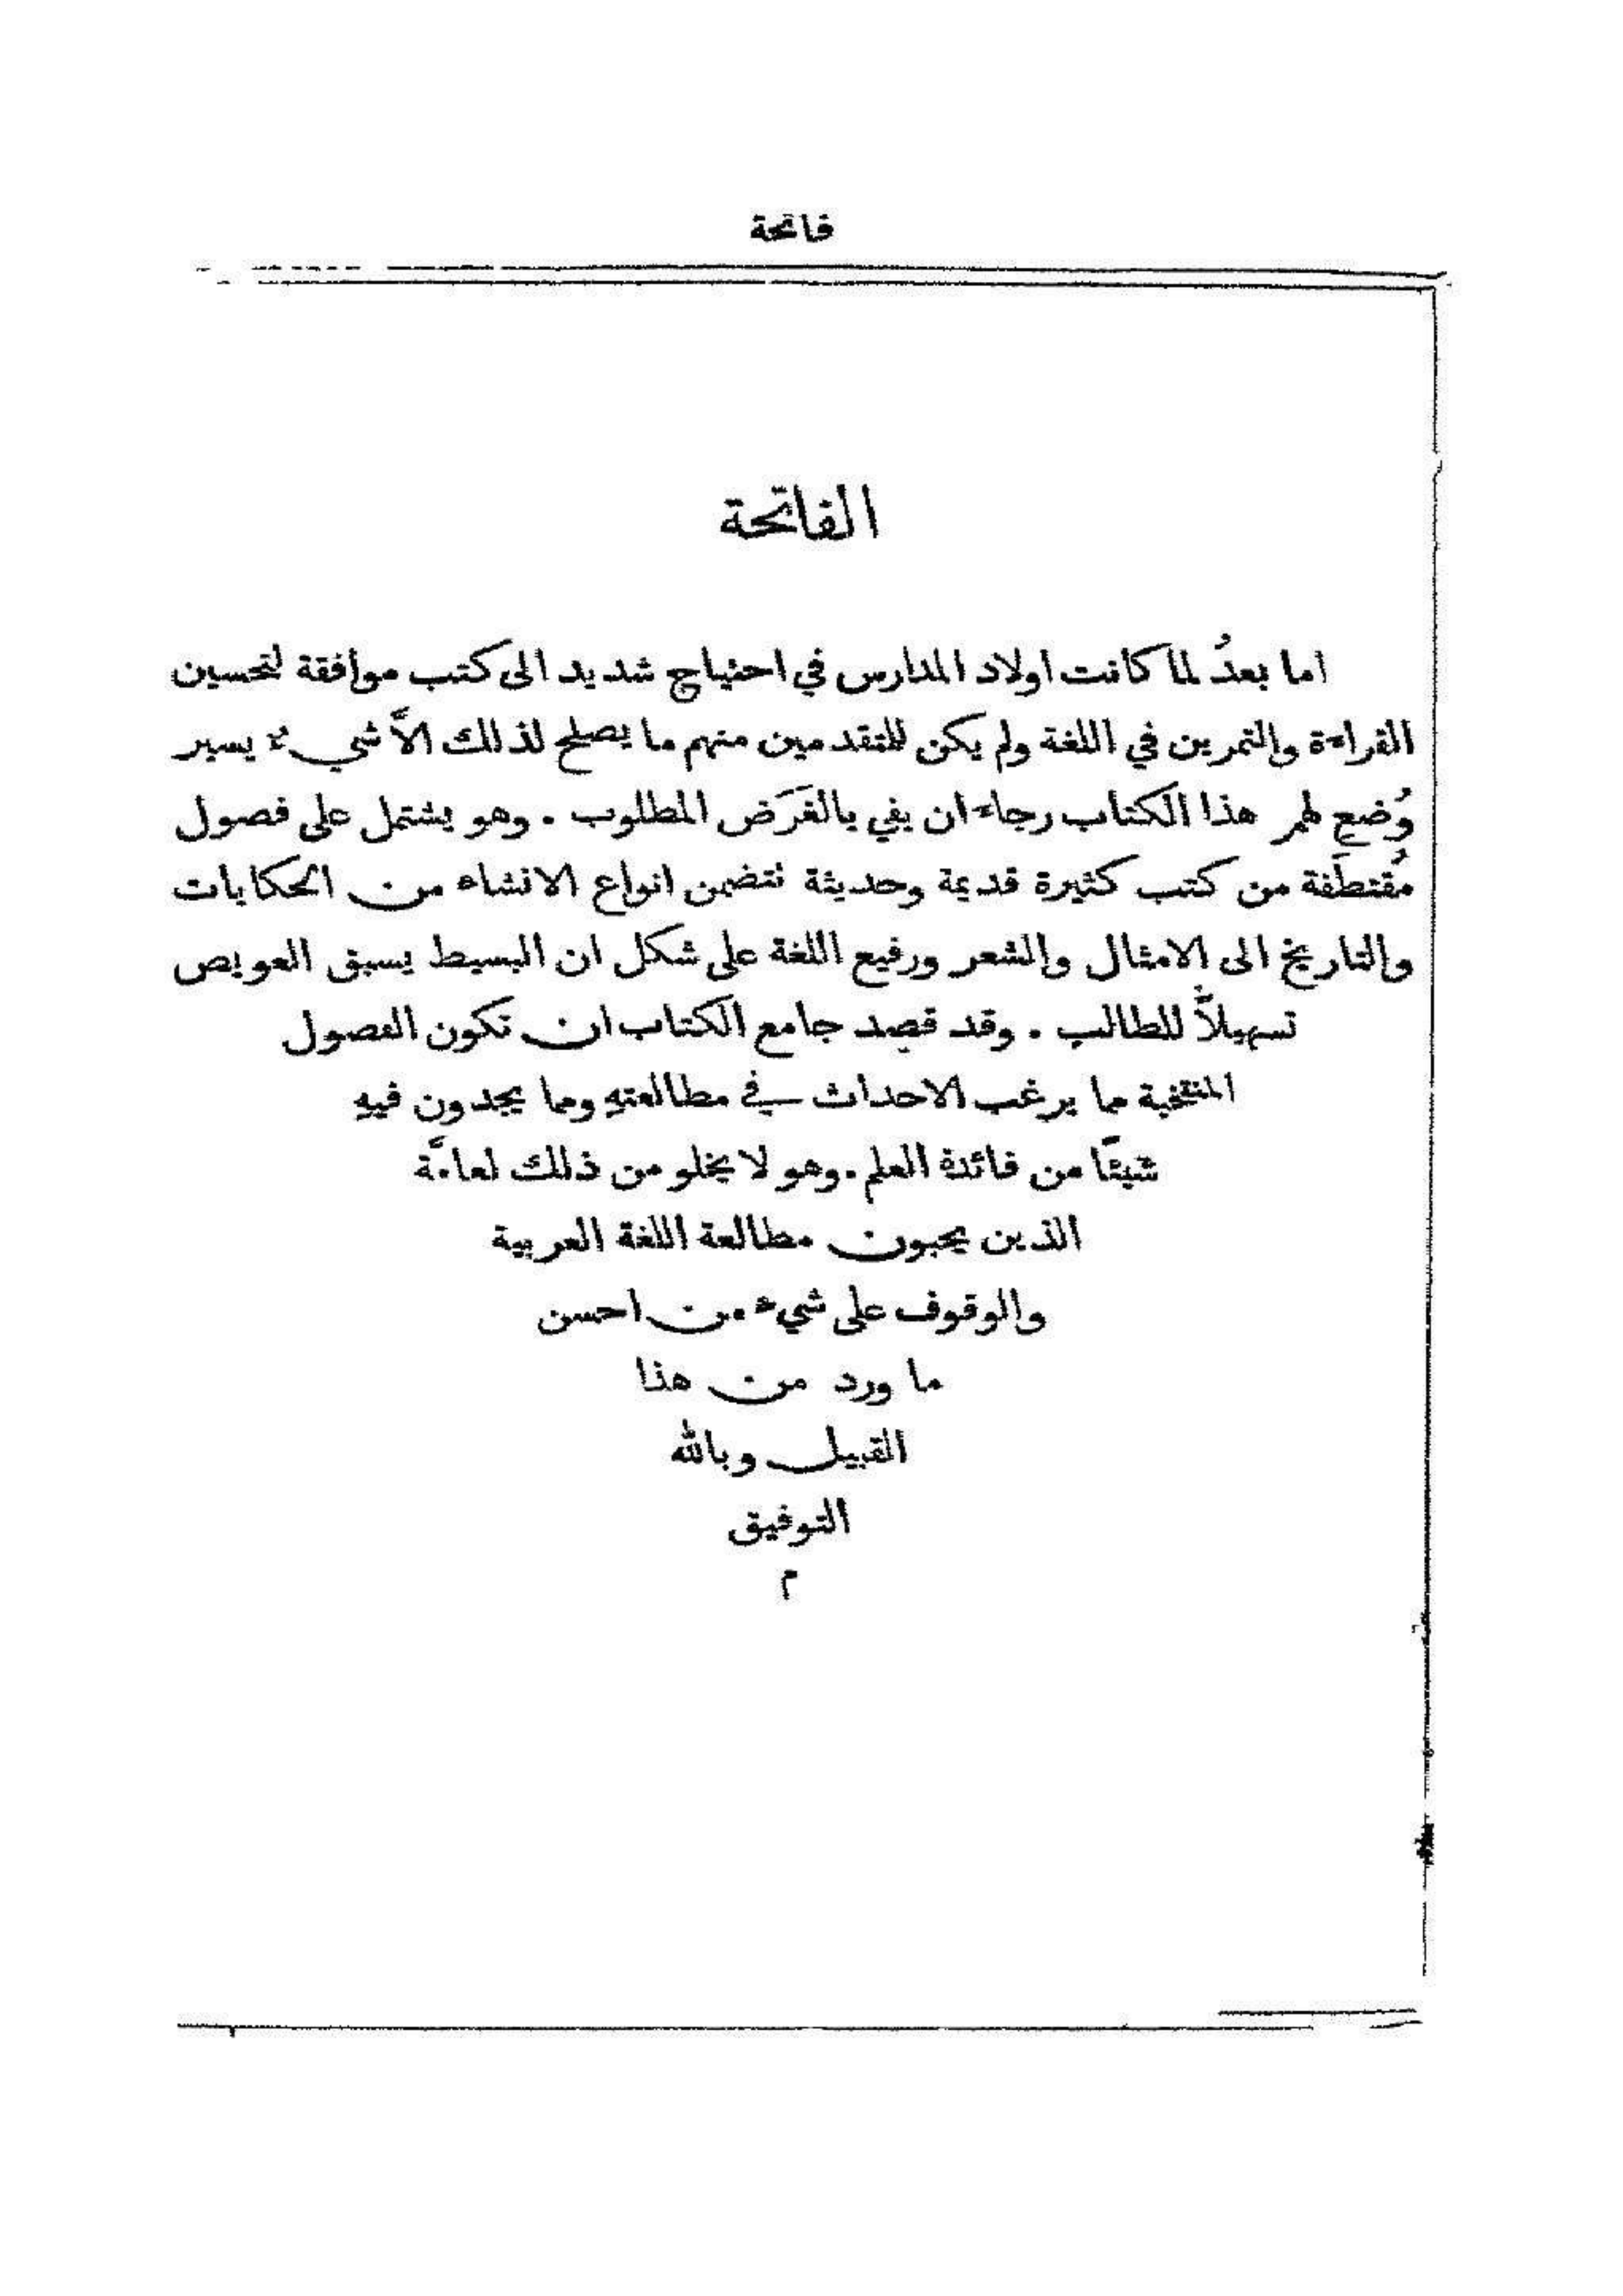 فاتحة
الفاتحة
اما بعدُ لما كانت اولاد المدارس في احتياج شديد الى كتب موافقة لتحسين
القراءة والتمرين في اللغة ولم يكن للمتقدمين منهم ما يصلح لذلك الاَّ شيءٌ يسير
وُضع لهم هذا الكتاب رجاء ان يفي بالغَرَض المطلوب . وهو يشتمل على فصول
مُقتطَفة من كتب كثيرة قديمة وحديثة تتضمن انواع الانشاء من الحكايات
والتاريخ الى الامثال والشعر ورفيع اللغة على شكل ان البسيط يسبق العويص
تسهيلاً للطالب . وقد قصد جامع الكتاب ان تكون الفصول
المنتخبة مما يرغب الاحداث في مطالعتهِ ومما يجدون فيهِ
شيئًا من فائدة العلم . وهو لا يخلو من ذلك لعامَّة
الذين يحبون مطالعة اللغة العربية
والوقوف على شيء من احسن
ما ورد من هذا
القبيل وبالله
التوفيق
م